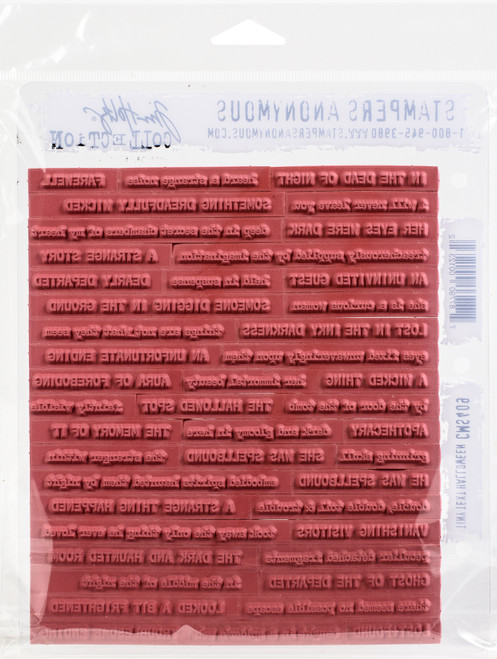 STAMPERS ANONYMOUS
1-800-945-3980 WWW.STAMPERSANONYMOUS.COM
Tim Holtz
COLLECTION
IN THE DEAD OF NIGHT heard a strange noise FAREWELL
I will never leave you SOMETHING DREADFULLY WICKED
HER EYES WERE DARK deep in the secret chambers of my heart
treacherously pursued by the imagination A STRANGE STORY
AN UNINVITED GUEST held in suspense DEARLY DEPARTED
she is a curious woman SOMEONE DIGGING IN THE GROUND
LOST IN THE INKY DARKNESS
eyes fixed unswervingly upon them AN UNFORTUNATE ENDING
A WICKED THING her immortal beauty AURA OF FOREBODING
by the door of the tomb THE HALLOWED SPOT
APOTHECARY dark and gloomy in here THE MEMORY OF IT
SHE WAS SPELLBOUND
HE WAS SPELLBOUND
double, double toil & trouble A STRANGE THING HAPPENED
VANISHING VISITORS took away the only thing he ever loved
THE DARK AND HAUNTED ROOM
GHOST OF THE DEPARTED in the middle of the night
there seemed no possible escape LOOKED A BIT FRIGHTENED
TINY TEXT HALLOWEEN CMS409